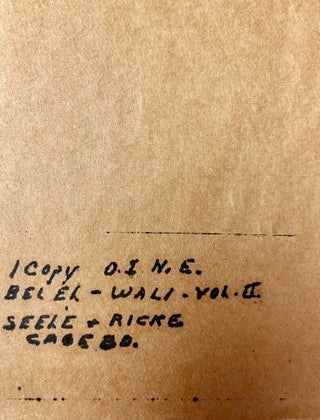 1 Copy O.I.N.E.
BEL EL - WALI - VOL. II
SEELE + RICKE
CASEBD.